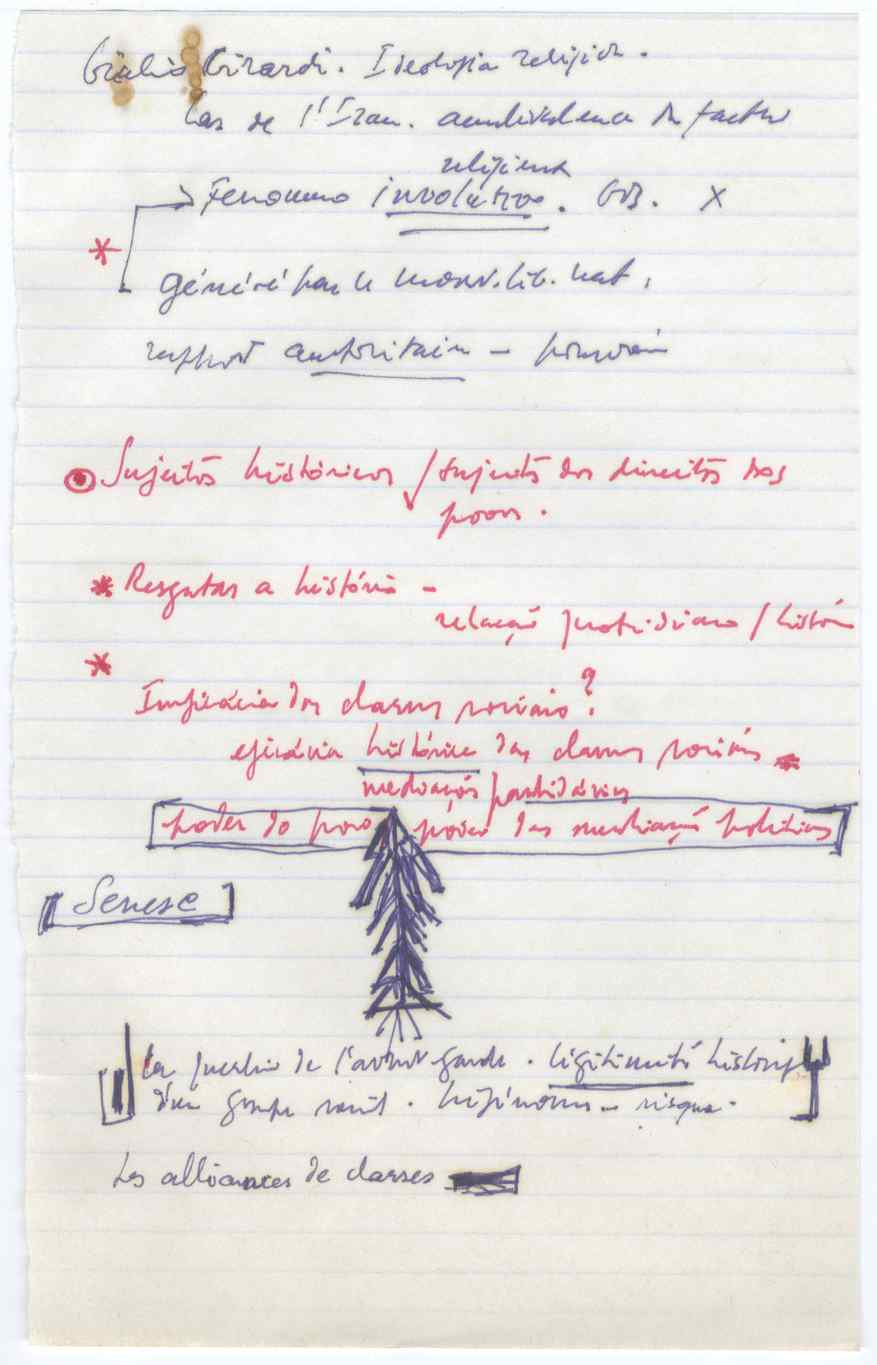 Giulio Girardi. Ideologia religios.
Cas de l'Iran. ambivalence du facteur
religieux
Fenomeno involutivo. X
généré par le mouv. lib. nat.
rapport autoritaire - pouvoir
Sujeitos históricos / sujeitos dos direitos dos
povos.
* Resgatar a história -
relação quotidiano / históri
*
dos classes sociais?
eficácia histórica das classes sociais
mediações partidárias
poder do povo poder das mediação políticas
[Senese]
La question de l'avant garde. légitimité historiq
d'un groupe social. risque.
Les alliances de classes